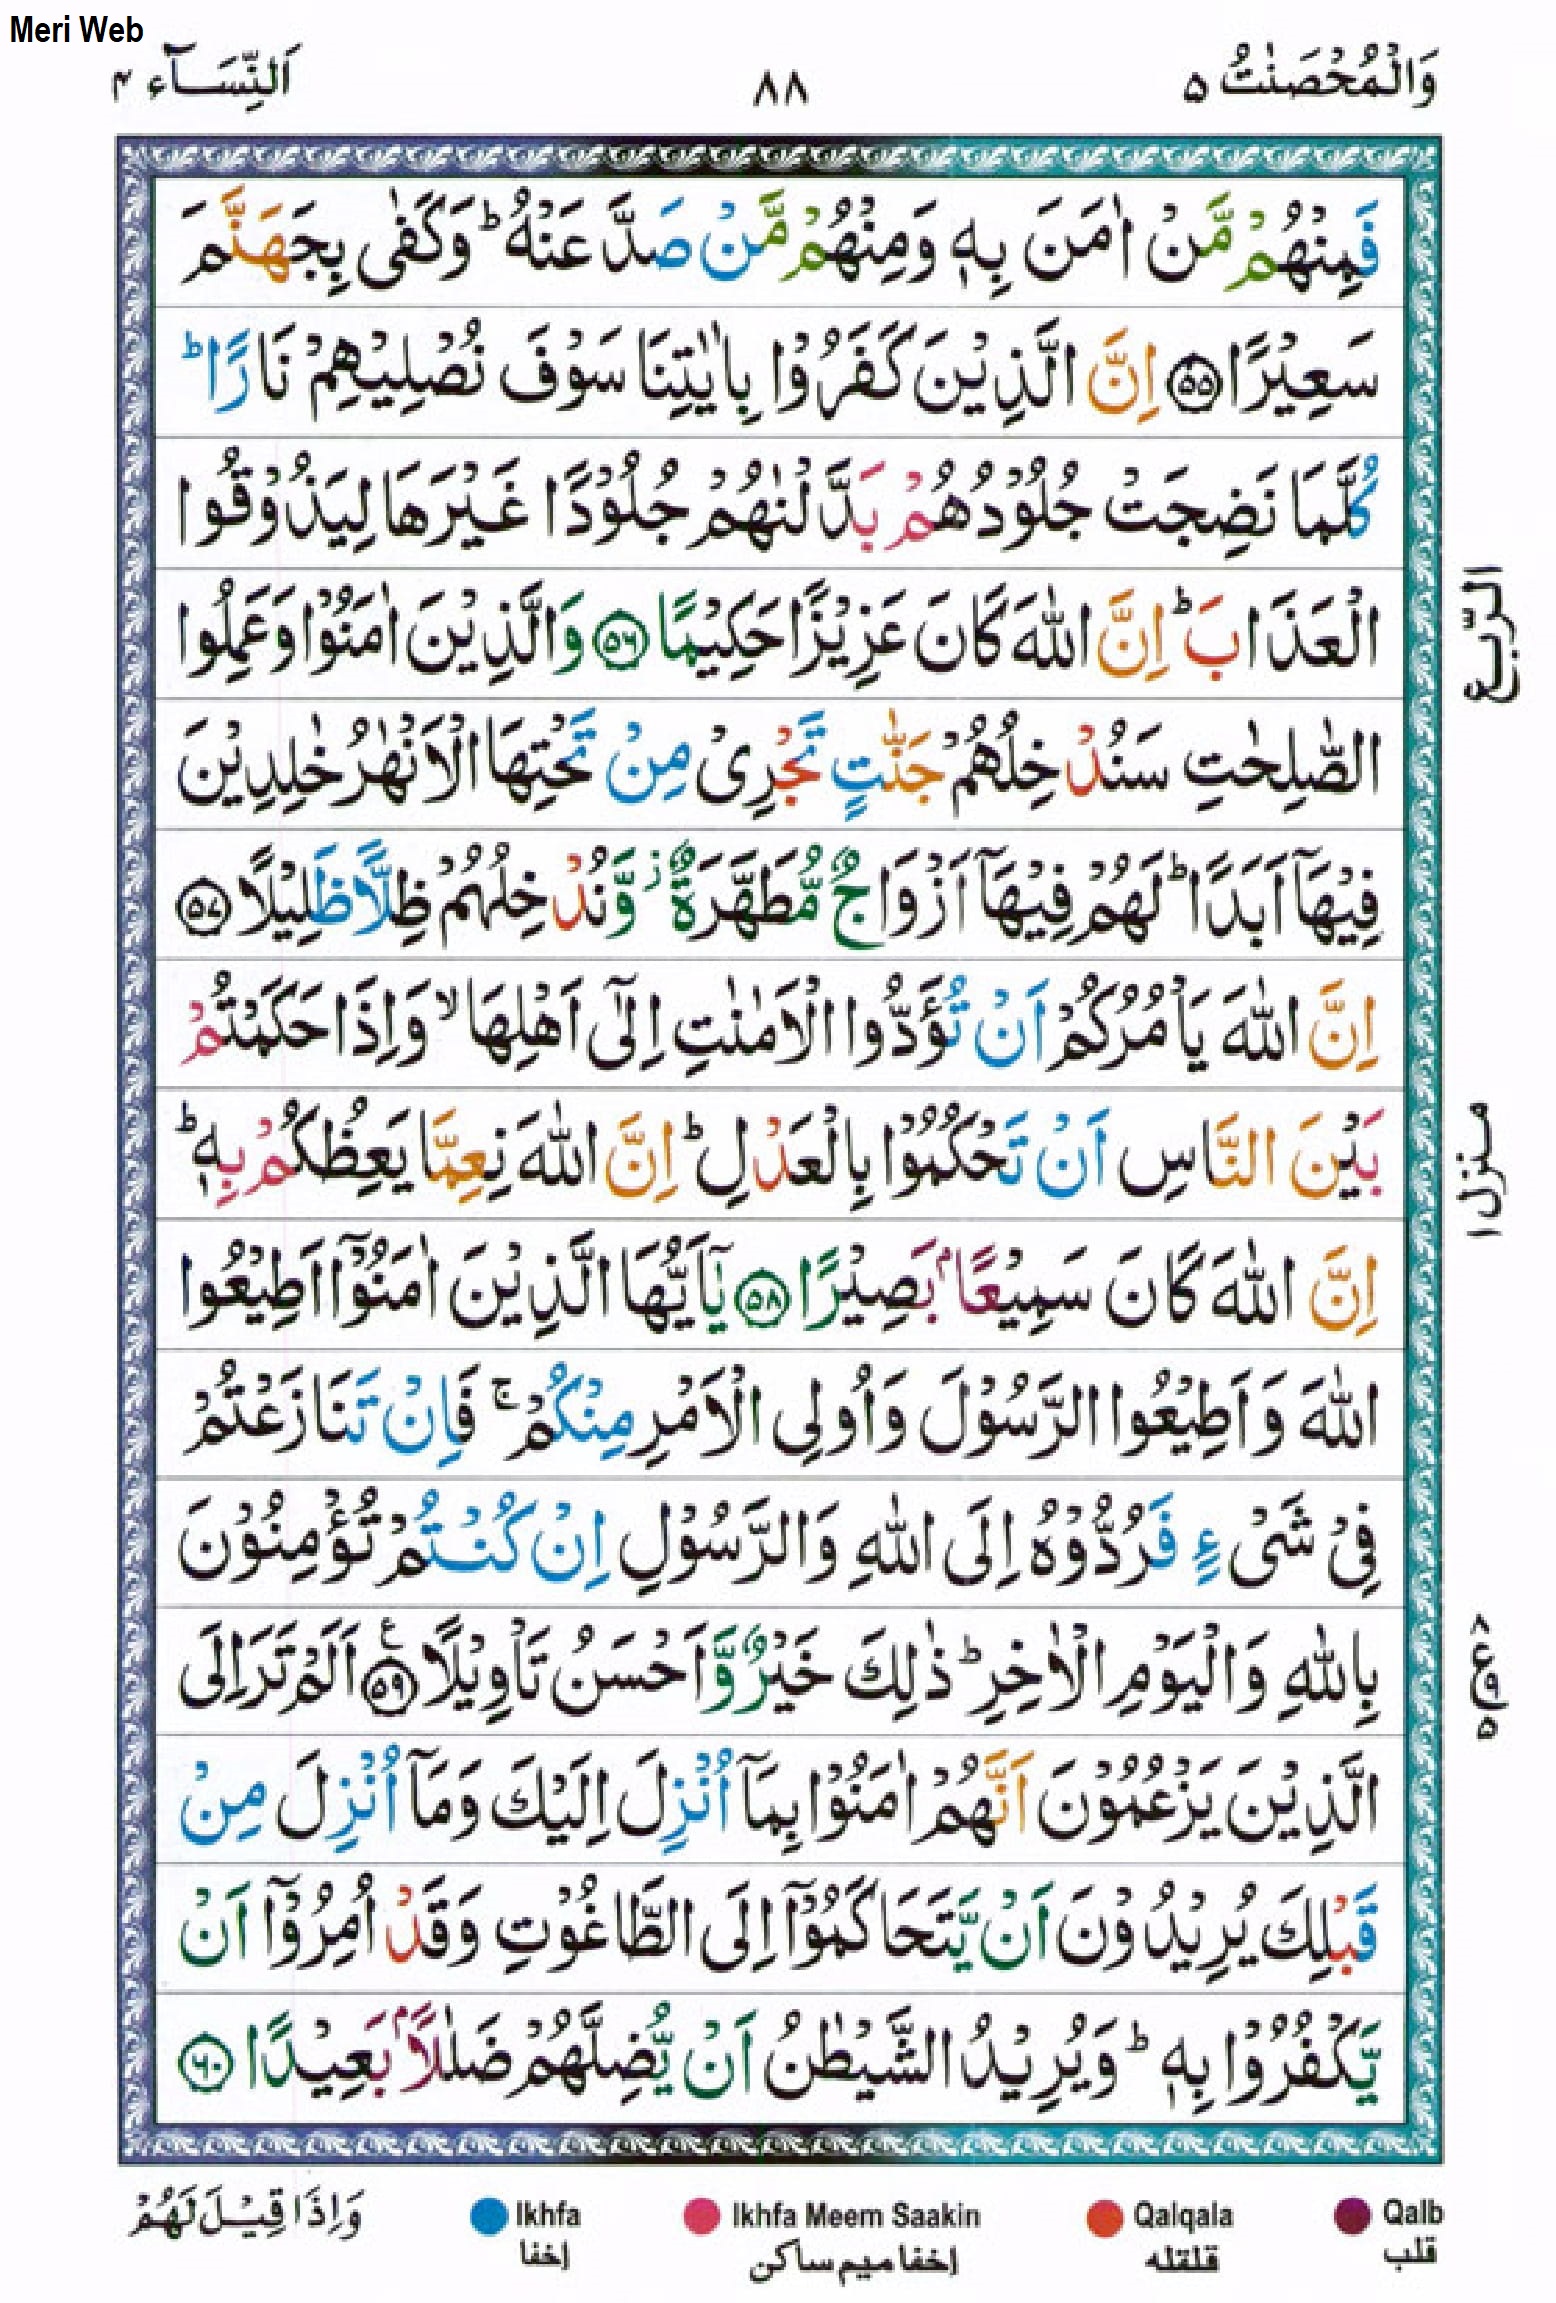 Meri Web
وَالْمُحْصَنٰتُ ۵
۸۸
اَلنِّسَآء ۴
فَمِنْهُمْ مَّنْ اٰمَنَ بِهٖ وَمِنْهُمْ مَّنْ صَدَّ عَنْهُ ؕ وَكَفٰى بِجَهَنَّمَ
سَعِيْرًا ﴿۵۵﴾ اِنَّ الَّذِيْنَ كَفَرُوْا بِاٰيٰتِنَا سَوْفَ نُصْلِيْهِمْ نَارًا ؕ
كُلَّمَا نَضِجَتْ جُلُوْدُهُمْ بَدَّلْنٰهُمْ جُلُوْدًا غَيْرَهَا لِيَذُوْقُوا
الْعَذَابَ ؕ اِنَّ اللّٰهَ كَانَ عَزِيْزًا حَكِيْمًا ﴿۵۶﴾ وَالَّذِيْنَ اٰمَنُوْا وَعَمِلُوا
الصّٰلِحٰتِ سَنُدْخِلُهُمْ جَنّٰتٍ تَجْرِىْ مِنْ تَحْتِهَا الْاَنْهٰرُ خٰلِدِيْنَ
فِيْهَاۤ اَبَدًا ؕ لَهُمْ فِيْهَاۤ اَزْوَاجٌ مُّطَهَّرَةٌ ز وَّنُدْخِلُهُمْ ظِلًّا ظَلِيْلًا ﴿۵۷﴾
اِنَّ اللّٰهَ يَاْمُرُكُمْ اَنْ تُؤَدُّوا الْاَمٰنٰتِ اِلٰٓى اَهْلِهَا ۙ وَاِذَا حَكَمْتُمْ
بَيْنَ النَّاسِ اَنْ تَحْكُمُوْا بِالْعَدْلِ ؕ اِنَّ اللّٰهَ نِعِمَّا يَعِظُكُمْ بِهٖ ؕ
اِنَّ اللّٰهَ كَانَ سَمِيْعًاۢ بَصِيْرًا ﴿۵۸﴾ يٰۤاَيُّهَا الَّذِيْنَ اٰمَنُوْۤا اَطِيْعُوا
اللّٰهَ وَاَطِيْعُوا الرَّسُوْلَ وَاُولِى الْاَمْرِ مِنْكُمْ ۚ فَاِنْ تَنَازَعْتُمْ
فِىْ شَىْءٍ فَرُدُّوْهُ اِلَى اللّٰهِ وَالرَّسُوْلِ اِنْ كُنْتُمْ تُؤْمِنُوْنَ
بِاللّٰهِ وَالْيَوْمِ الْاٰخِرِ ؕ ذٰلِكَ خَيْرٌ وَّاَحْسَنُ تَاْوِيْلًا ﴿۵۹﴾ ع اَلَمْ تَرَ اِلَى
الَّذِيْنَ يَزْعُمُوْنَ اَنَّهُمْ اٰمَنُوْا بِمَاۤ اُنْزِلَ اِلَيْكَ وَمَاۤ اُنْزِلَ مِنْ
قَبْلِكَ يُرِيْدُوْنَ اَنْ يَّتَحَاكَمُوْۤا اِلَى الطَّاغُوْتِ وَقَدْ اُمِرُوْۤا اَنْ
يَّكْفُرُوْا بِهٖ ؕ وَيُرِيْدُ الشَّيْطٰنُ اَنْ يُّضِلَّهُمْ ضَلٰلًاۢ بَعِيْدًا ﴿۶۰﴾
الرّبع
منزل ۱
۸ ع ۹ ۵
وَاِذَا قِيْلَ لَهُمْ
Ikhfa
اخفا
Ikhfa Meem Saakin
اخفا میم ساکن
Qalqala
قلقله
Qalb
قلب